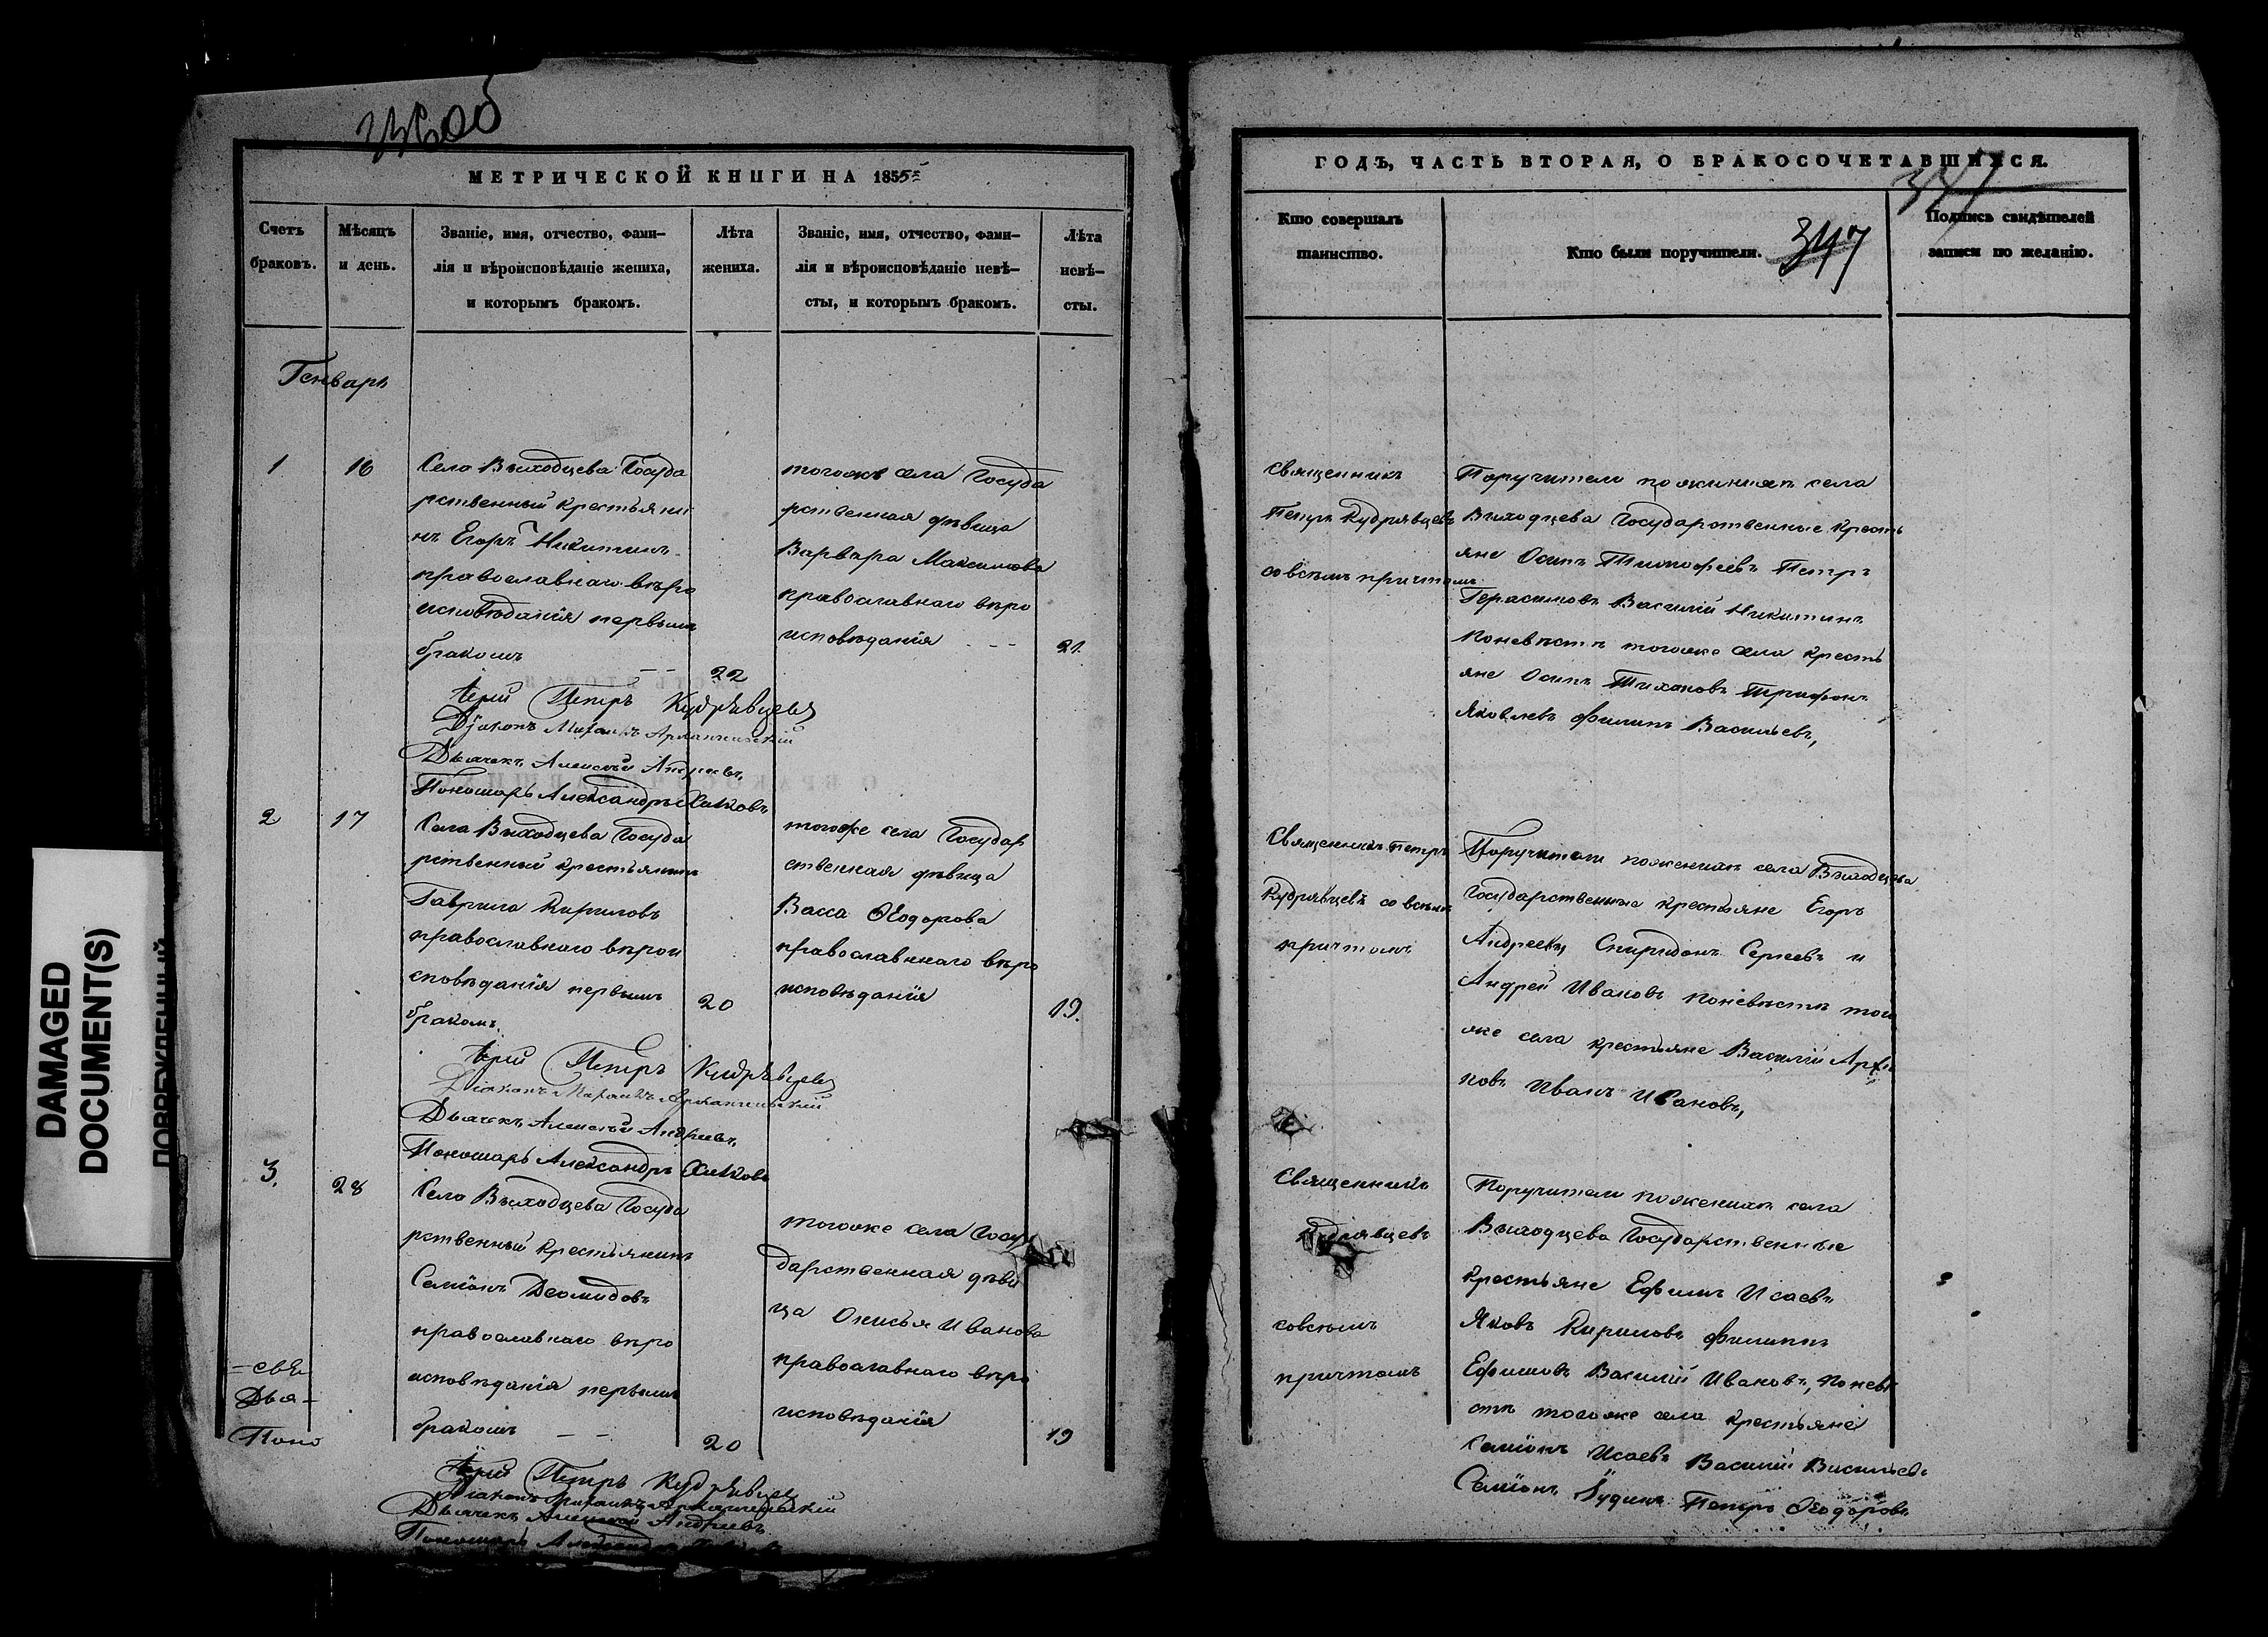 DAMAGED
DOCUMENT(S)
ПОВРЕЖДЕННЫЙ
МЕТРИЧЕСКОЙ КНИГИ НА 1855
Счетъ
браковъ.
Мѣсяцъ
и день.
Званіе, имя, отчество, фами-
лія и вѣроисповѣданіе жениха,
и которымъ бракомъ.
Лѣта
жениха.
Званіе, имя, отчество, фами-
лія и вѣроисповѣданіе невѣ-
сты, и которымъ бракомъ.
Лѣта
невѣ-
сты.
Генварь
1
16
Села Выходцева Госуда
рственный крестьяни
нъ Егоръ Никитинъ
православнаго вѣро
исповѣданія первымъ
бракомъ
22
тогожъ села Госуда
рственная дѣвица
Варвара Максимова
православнаго вѣро
исповѣданія
21.
Іерей Петръ Кудрявцевъ
Діаконъ Михаилъ Архангельскій
Дьячекъ Алексѣй Андреевъ
Пономарь Александръ
2
17
Села Выходцева Госуда
рственный крестьянинъ
Гаврила Кириловъ
православнаго вѣрои
сповѣданія первымъ
бракомъ
20
тогоже села Государ
ственная дѣвица
Васса Ѳеодорова
православнаго вѣро
исповѣданія
19.
Іерей Петръ Кудрявцевъ
Діаконъ Михаилъ Архангельскій
Дьячекъ Алексѣй Андреевъ
Пономарь Александръ
3.
28
Села Выходцева Госуда
рственный крестьянинъ
Семіонъ Деомидовъ
православнаго вѣро
исповѣданія первымъ
бракомъ
20
тогоже села Госу
дарственная дѣви
ца Иванова
православнаго вѣро
исповѣданія
19
Дья-
Поно
Іерей Петръ Кудрявцевъ
Діаконъ Михаилъ Архангельскій
Дьячекъ Алексѣй Андреевъ
Пономарь Александръ
ГОДЪ, ЧАСТЬ ВТОРАЯ, О БРАКОСОЧЕТАВШИХСЯ.
347
Кто совершалъ
таинство.
Кто были поручители.
347
Подпись свидѣтелей
записи по желанію.
священникъ
Петръ Кудрявцевъ
со всѣмъ причтомъ
Поручители по женихѣ села
Выходцева Государственные кресть
яне Осипъ Тимофеевъ Петръ
Герасимовъ Василій Никитинъ
поневѣстѣ тогоже села кресть
яне Осипъ Тихоновъ Трифонъ
Яковлевъ Филипъ Васильевъ,
Священникъ Петръ
Кудрявцевъ со всѣмъ
причтомъ
Поручители поженихѣ села Выходцева
Государственные крестьяне Егоръ
Андреевъ, Спиридонъ Сергеевъ и
Андрей Ивановъ поневѣстѣ того
же села крестьяне Василій
Иванъ Ивановъ,
Священникъ
Кудрявцевъ
совсѣмъ
причтомъ
Поручители поженихѣ села
Выходцева Государственные
крестьяне Ефимъ Исаевъ
Яковъ Кириловъ Филиппъ
Ефимовъ Василій Ивановъ, поневѣ
стѣ тогоже села крестьяне
Семіонъ Исаевъ Василій Васильевъ
Семіонъ Петръ Ѳеодоровъ